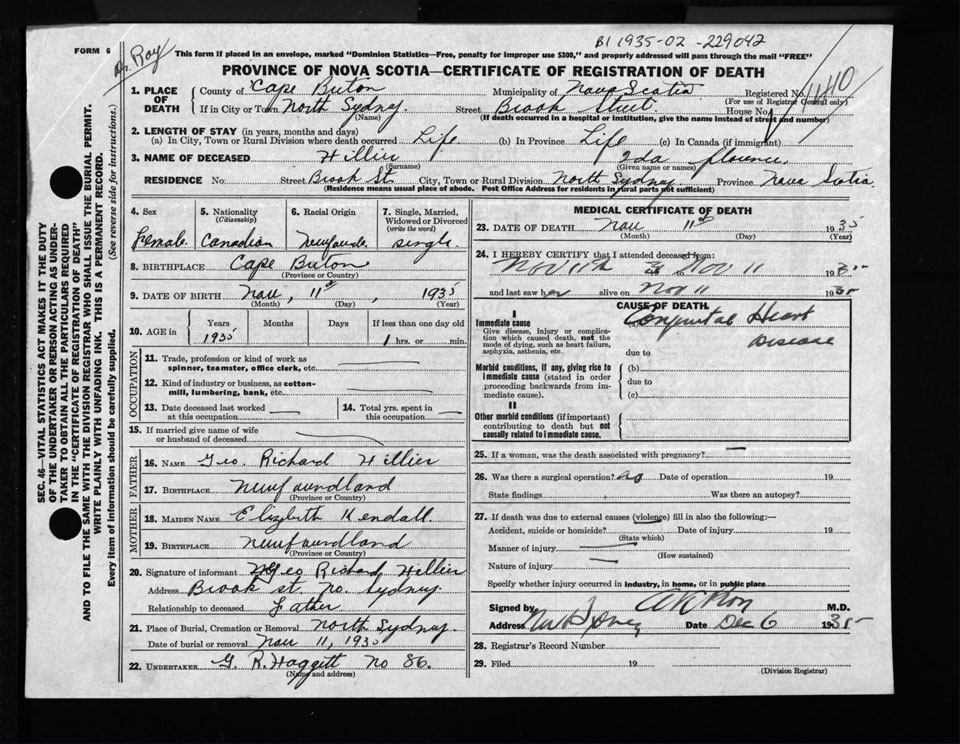 B1 1935-02-229042
FORM 6
Dr. Roy
This form if placed in an envelope, marked "Dominion Statistics—Free, penalty for improper use $300," and properly addressed will pass through the mail "FREE"
PROVINCE OF NOVA SCOTIA—CERTIFICATE OF REGISTRATION OF DEATH
1. PLACE OF DEATH
County of Cape Breton Municipality of Nova Scotia Registered No. 1410
(For use of Registrar General only)
If in City or Town North Sydney. Street Brook Street. House No.
(Name) (If death occurred in a hospital or institution, give the name instead of street and number)
2. LENGTH OF STAY (in years, months and days)
(a) In City, Town or Rural Division where death occurred Life (b) In Province Life (c) In Canada (if immigrant)
3. NAME OF DECEASED Hillier Ida Florence.
(Surname) (Given name or names)
RESIDENCE No. Street Brook St. City, Town or Rural Division North Sydney. Province Nova Scotia
(Residence means usual place of abode. Post Office Address for residents in rural parts not sufficient)
SEC. 46—VITAL STATISTICS ACT MAKES IT THE DUTY
OF THE UNDERTAKER OR PERSON ACTING AS UNDER-
TAKER TO OBTAIN ALL THE PARTICULARS REQUIRED
IN THE "CERTIFICATE OF REGISTRATION OF DEATH"
AND TO FILE THE SAME WITH THE DIVISION REGISTRAR WHO SHALL ISSUE THE BURIAL PERMIT.
WRITE PLAINLY WITH UNFADING INK. THIS IS A PERMANENT RECORD.
Every item of information should be carefully supplied. (See reverse side for instructions.)
4. Sex 5. Nationality (Citizenship) 6. Racial Origin 7. Single, Married, Widowed or Divorced (write the word)
Female. Canadian single.
8. BIRTHPLACE Cape Breton
(Province or Country)
9. DATE OF BIRTH Nov, 11th, 1935
(Month) (Day) (Year)
10. AGE in Years Months Days If less than one day old
1935 1 hrs. or min.
OCCUPATION
11. Trade, profession or kind of work as
spinner, teamster, office clerk, etc.
12. Kind of industry or business, as cotton-
mill, lumbering, bank, etc.
13. Date deceased last worked
at this occupation
14. Total yrs. spent in
this occupation
15. If married give name of wife
or husband of deceased
FATHER
16. NAME Geo. Richard Hillier
17. BIRTHPLACE Newfoundland
(Province or Country)
MOTHER
18. MAIDEN NAME Elizabeth Kendall.
19. BIRTHPLACE Newfoundland
(Province or Country)
20. Signature of informant Geo Richard Hillier
Address Brook St. No. Sydney.
Relationship to deceased Father
21. Place of Burial, Cremation or Removal North Sydney.
Date of burial or removal Nov 11, 1935
22. UNDERTAKER G. R. Haggett No 86.
(Name and address)
MEDICAL CERTIFICATE OF DEATH
23. DATE OF DEATH Nov 11th 1935
(Month) (Day) (Year)
24. I HEREBY CERTIFY that I attended deceased from:
Nov 11th to Nov 11 1935
and last saw her alive on Nov 11 1935
CAUSE OF DEATH
I
Immediate cause Congenital Heart
Disease
Give disease, injury or complica-
tion which caused death, not the
mode of dying, such as heart failure,
asphyxia, asthenia, etc.
due to
Morbid conditions, if any, giving rise to
immediate cause (stated in order
proceeding backwards from im-
mediate cause).
(b)
due to
(c)
II
Other morbid conditions (if important)
contributing to death but not
causally related to immediate cause.
25. If a woman, was the death associated with pregnancy?
26. Was there a surgical operation? no Date of operation 19
State findings Was there an autopsy?
27. If death was due to external causes (violence) fill in also the following:—
Accident, suicide or homicide? Date of injury 19
(State which)
Manner of injury
(How sustained)
Nature of injury
Specify whether injury occurred in industry, in home, or in public place
Signed by M.D.
Address Date Dec 6 1935
28. Registrar's Record Number
29. Filed 19
(Division Registrar)